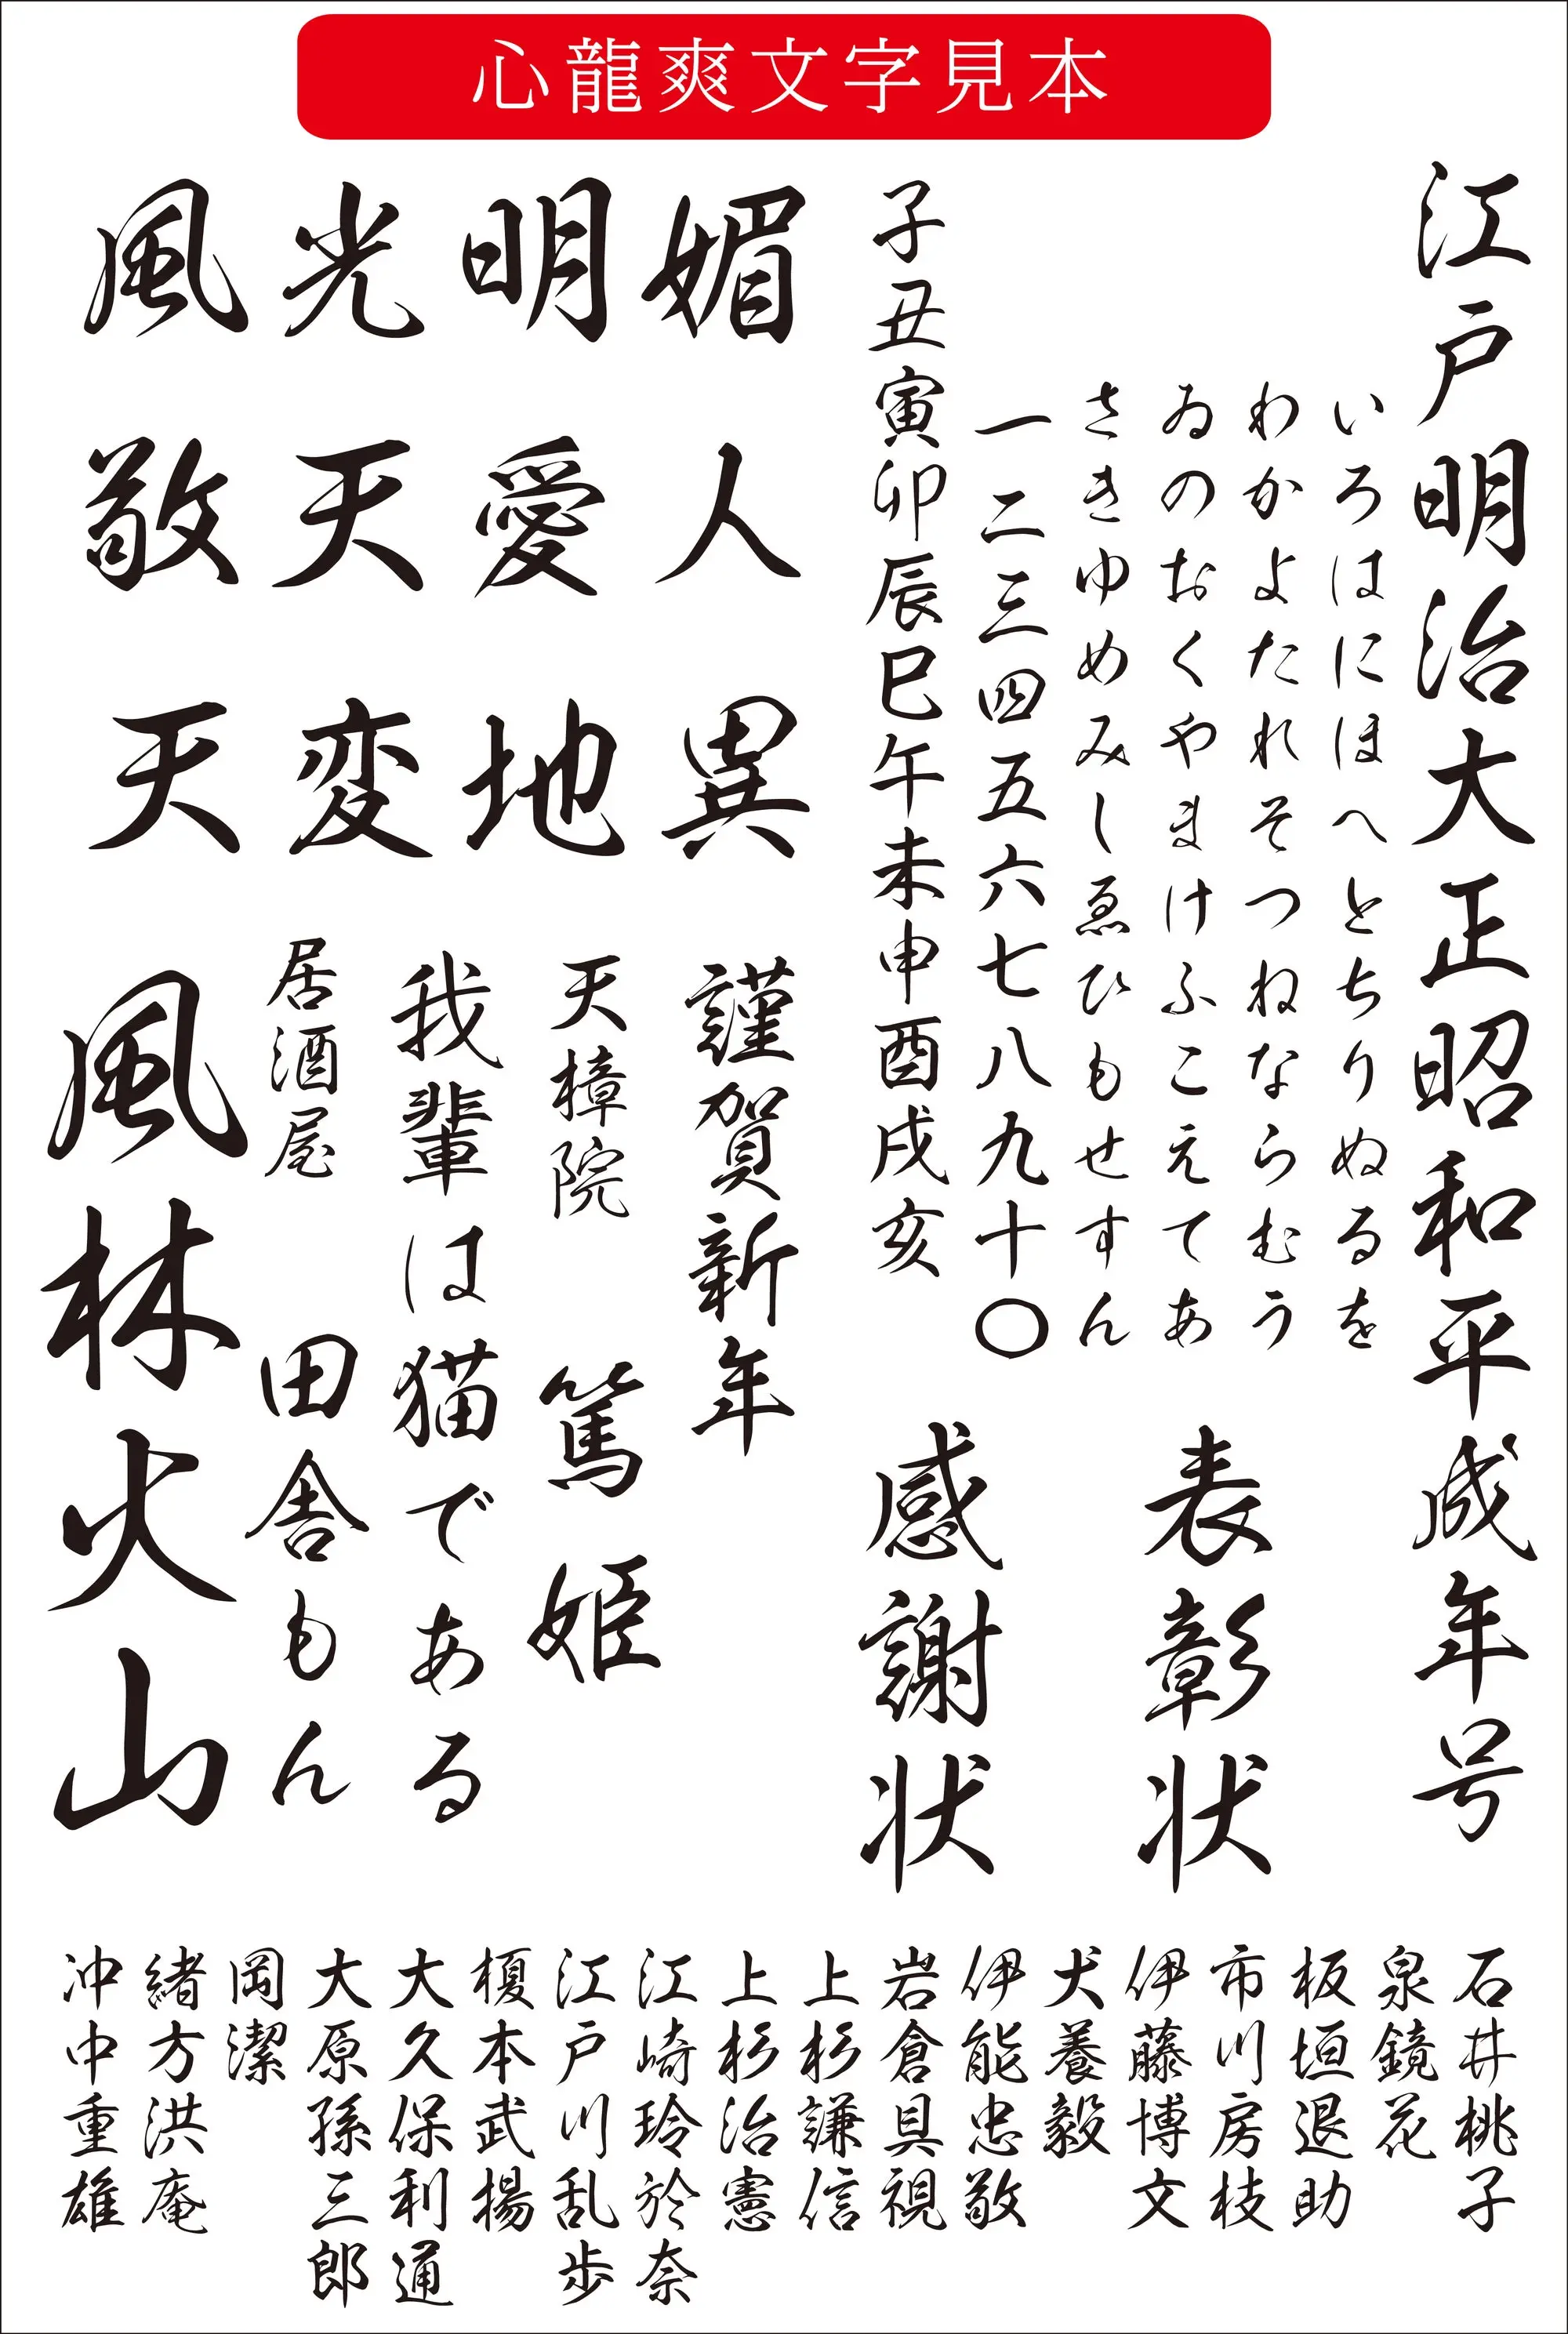 心龍爽文字見本
江戸明治大正昭和平成年号
いろはにほへとちりぬるを
わかよたれそつねならむう
ゐのおくやまけふこえてあ
さきゆめみしゑひもせすん
一二三四五六七八九十〇
子丑寅卯辰巳午未申酉戌亥
表彰状
感謝状
媚人異
明愛地
光天変
風敬天
謹賀新年
天樟院
篤姫
我輩は猫である
居酒屋
田舎もん
風林火山
石井桃子
泉鏡花
板垣退助
市川房枝
伊藤博文
犬養毅
伊能忠敬
岩倉具視
上杉謙信
上杉治憲
江崎玲於奈
江戸川乱歩
榎本武揚
大久保利通
大原孫三郎
岡潔
緒方洪庵
沖中重雄